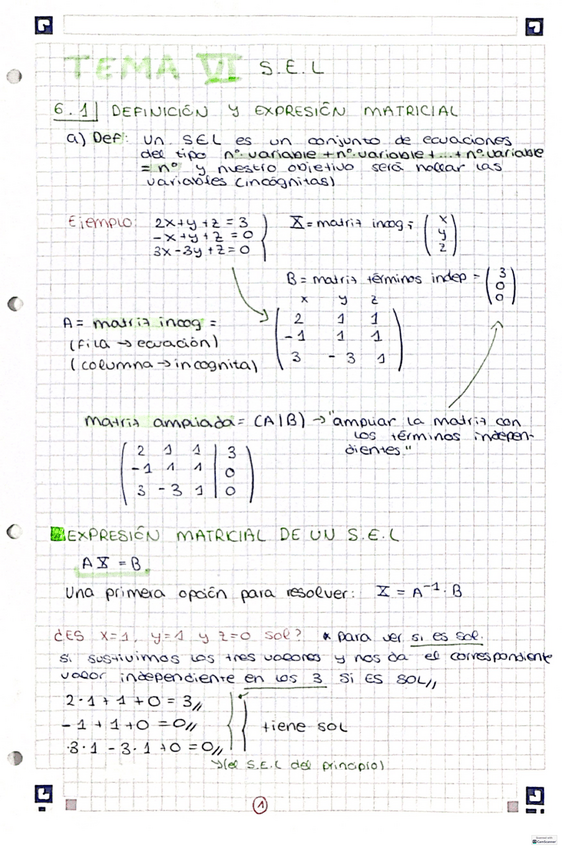 TEMA VI S.E.L
6.1 DEFINICIÓN Y EXPRESIÓN MATRICIAL
a) Def: Un SEL es un conjunto de ecuaciones
del tipo nº·variable + nº·variable + ... + nº·variable
= nº y nuestro objetivo será hallar las
variables (incógnitas)
Ejemplo: 2x+y+z=3
-x+y+z=0
3x-3y+z=0
X = matriz incog =
x
y
z
B = matriz términos indep =
3
0
0
A = matriz incog =
(fila → ecuación)
(columna → incognita)
x y z
2 1 1
-1 1 1
3 -3 1
matriz ampliada = (A|B) → "ampliar la matriz con
los términos indepen-
dientes."
2 1 1 | 3
-1 1 1 | 0
3 -3 1 | 0
EXPRESIÓN MATRICIAL DE UN S.E.L
AX = B
Una primera opción para resolver: X = A⁻¹·B
¿ES x=1, y=1 y z=0 sol? * para ver si es sol.
si sustiuimos los tres valores y nos da el correspondiente
valor independiente en los 3 SI ES SOL//
2·1+1+0=3//
-1+1+0=0//
3·1-3·1+0=0//
tiene sol
(el S.E.L del principio)
1
CamScanner